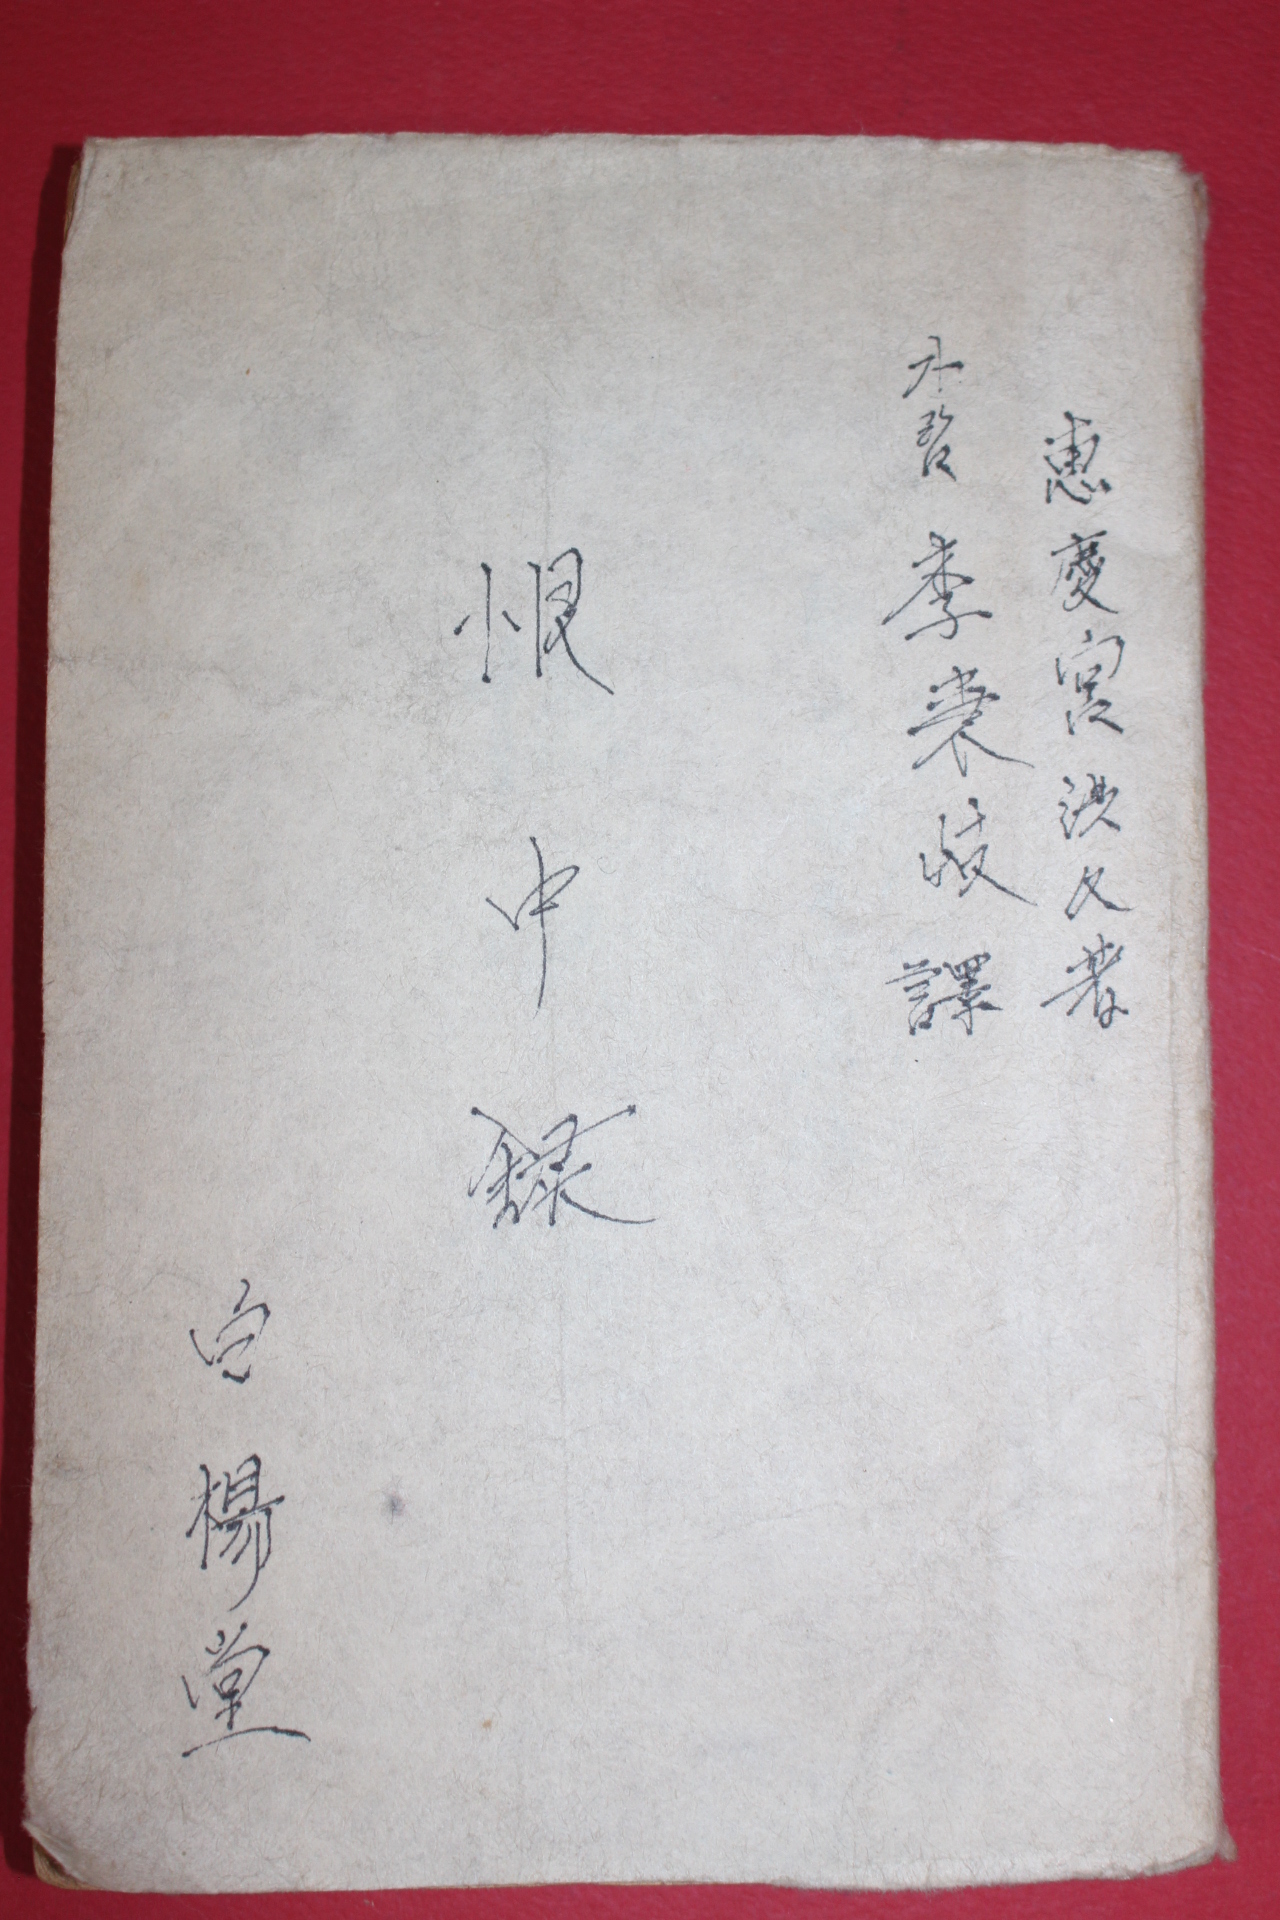 惠慶宮洪氏著
가람 李秉岐 譯
恨中錄
白楊堂